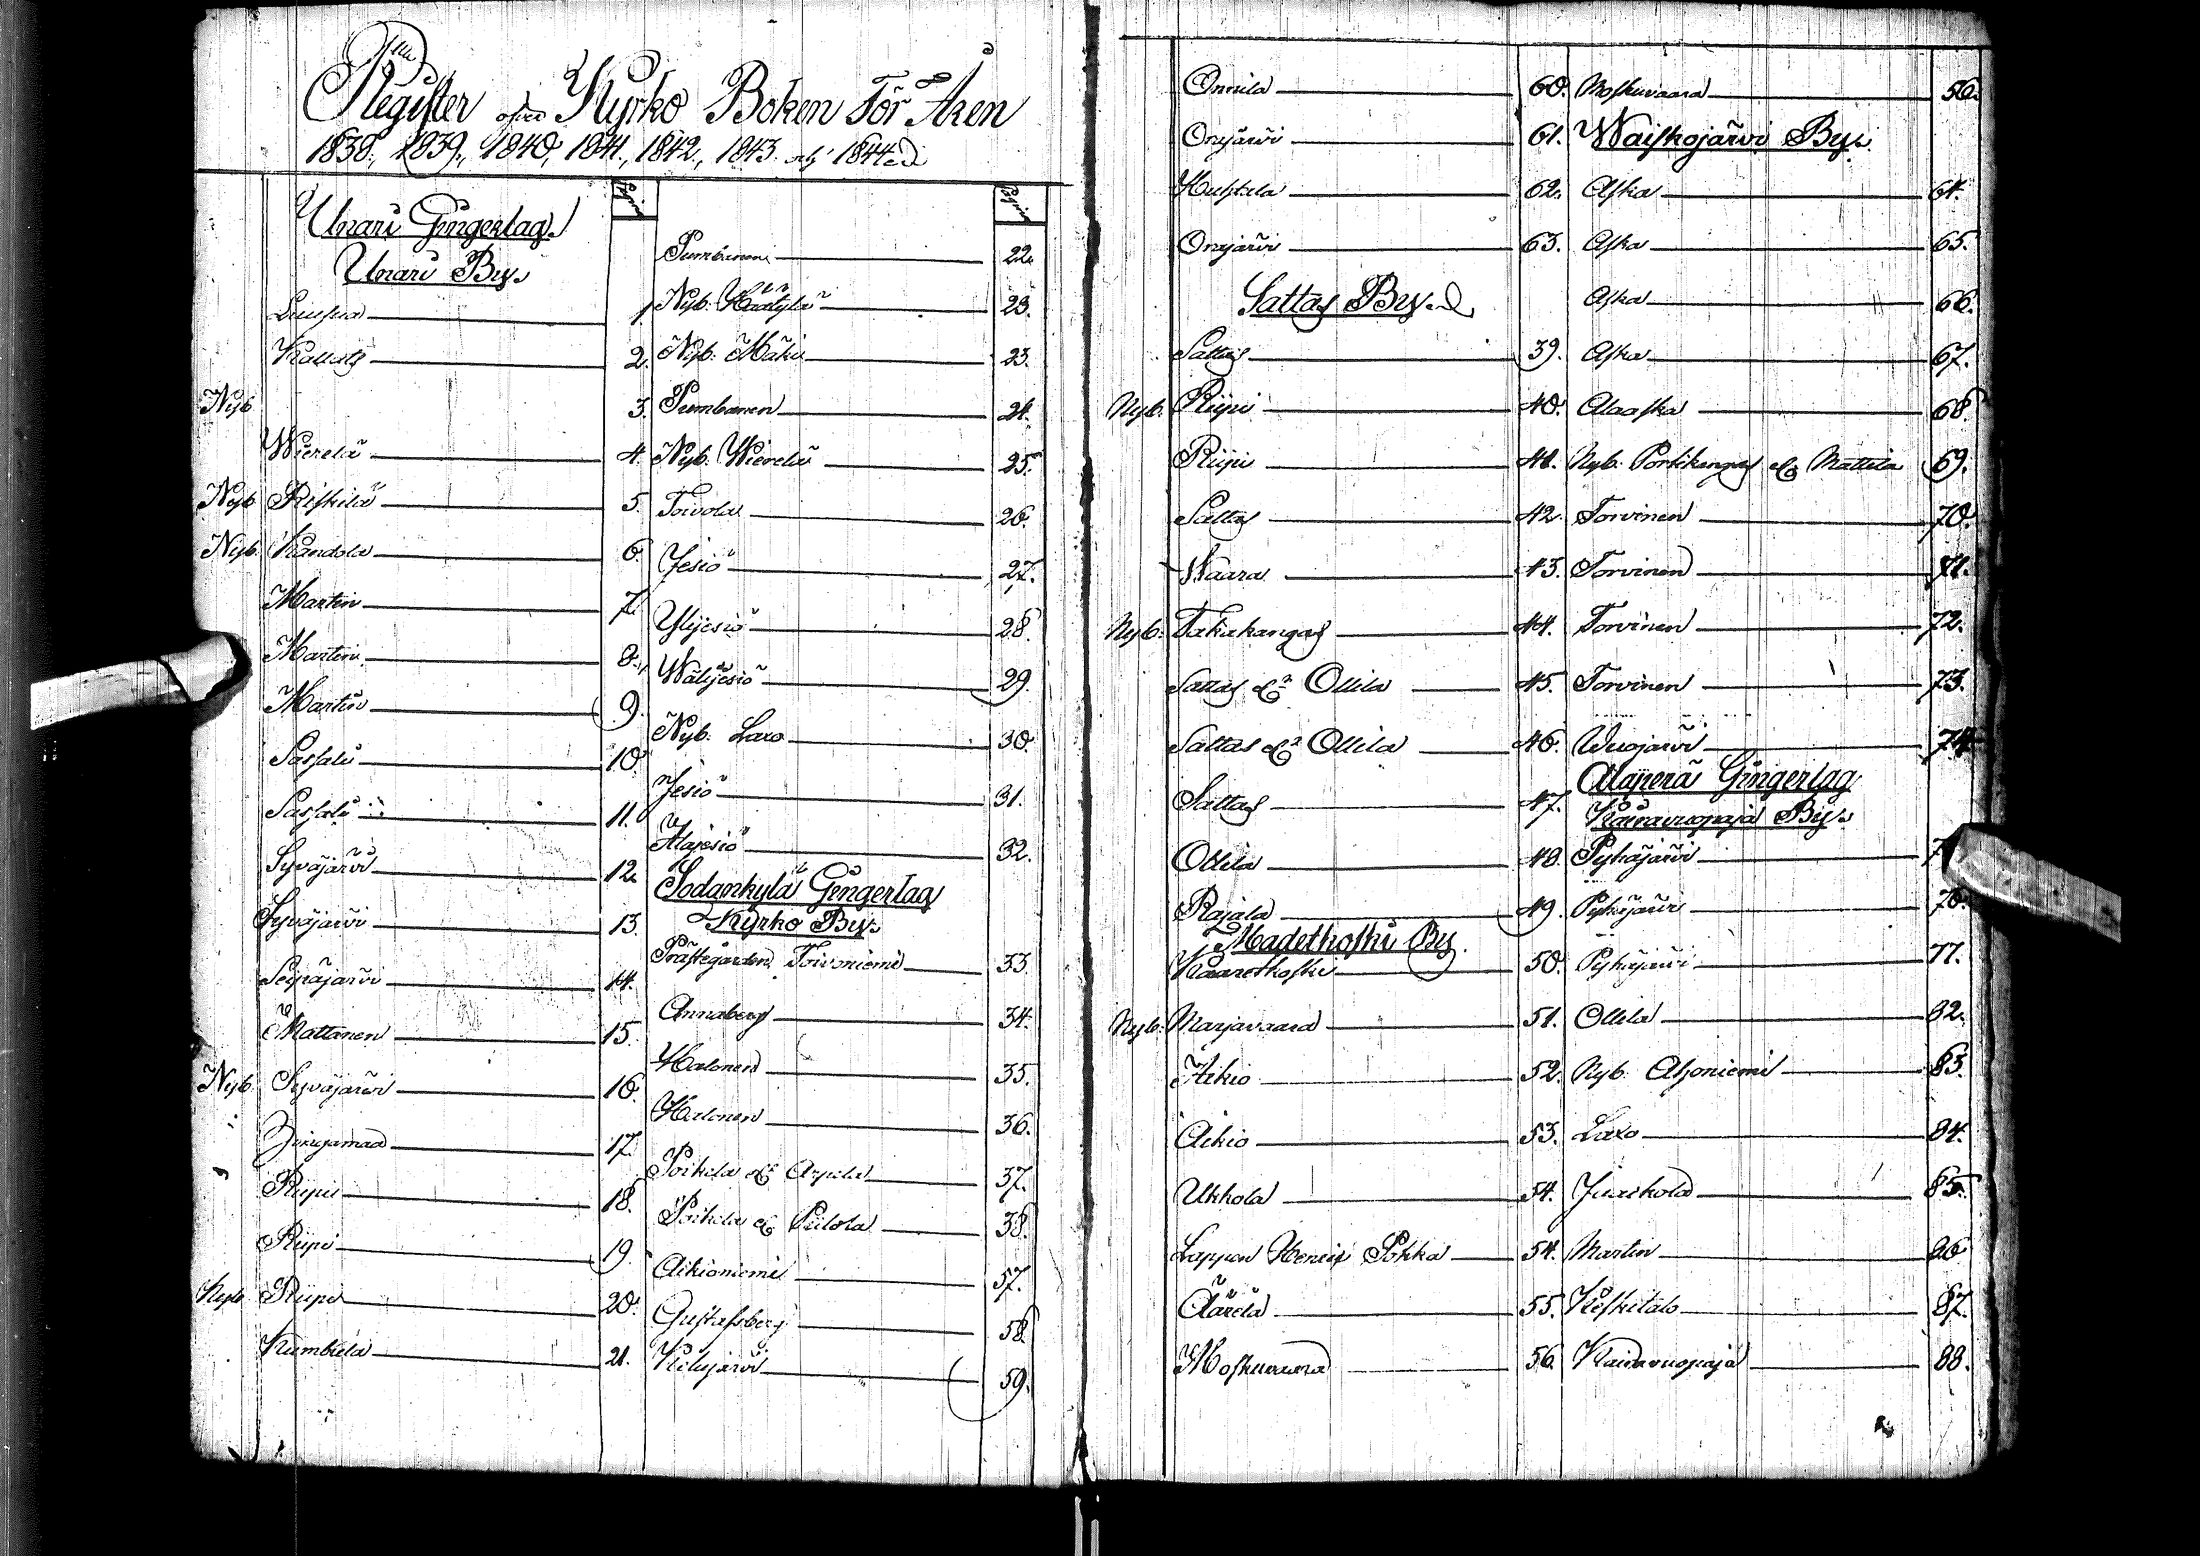 Register öfver Kyrko Boken för Åren
1838, 1839, 1840, 1841, 1842, 1843 och 1844
Pagina
Unari Gingerlag
Unari By
Liusua 1.
2.
Nyb 3.
Wierelä 4.
Nyb Riskilä 5.
Nyb. Kandola 6.
Martin 7.
Martin 8.
Martin 9.
Sassali 10.
Sassali 11.
Syväjärvi 12.
Syväjärvi 13.
Seipäjärvi 14.
Mattanen 15.
Nyb. Syväjärvi 16.
17.
Riipi 18.
Riipi 19.
Nyb Riipi 20.
Kumbula 21.
Pagina
Pumbanen 22.
Nyb. Häätylä 23.
Nyb. Mäki 23.
Pumbanen 24.
Nyb. Wierelä 25.
Toivola 26.
Jesiö 27.
Ylijesiö 28.
Wälijesiö 29.
Nyb. Laxo 30.
Jesiö 31.
Alajesiö 32.
Sodankylä Gingerlag
Kyrko By
Prästegården Toivoniemi 33.
Annaberg 34.
Halonen 35.
Halonen 36.
Poikela & Arpela 37.
Poikela & Piilola 38.
Aikioniemi 57.
Gustafsberg 58.
Kelujärvi 59.
Onnila 60.
Orajärvi 61.
Huhtila 62.
Orajärvi 63.
Sattas By
Sattas 39.
Nyb. Riipi 40.
Riipi 41.
Sattas 42.
Waara 43.
Nyb. Takakangas 44.
Sattas & Ollila 45.
Sattas & Ollila 46.
Sattas 47.
Ollila 48.
Rajala 49.
Madetkoski By.
Kaaretkoski 50.
Nyb. Marjavaara 51.
Aikio 52.
Aikio 53.
Ukkola 54.
Lappen Henric Pokka 54.
Äärelä 55.
Moskuvaara 56.
Moskuvaara 56.
Waiskojärvi By.
Aska 64.
Aska 65.
Aska 66.
Aska 67.
Alaaska 68.
Nyb. Portikangas & Mattila 69.
Torvinen 70.
Torvinen 71.
Torvinen 72.
Torvinen 73.
Wuojärvi 74.
Alaperä Gingerlag
Kairavuopaja By
Pyhäjärvi
Pyhäjärvi 76.
Pyhäjärvi 77.
Ollila 82.
Nyb. Ahoniemi 83.
Laxo 84.
Juurikold 85.
Martin 86
Keskitalo 87.
Kairavuopaja 88.